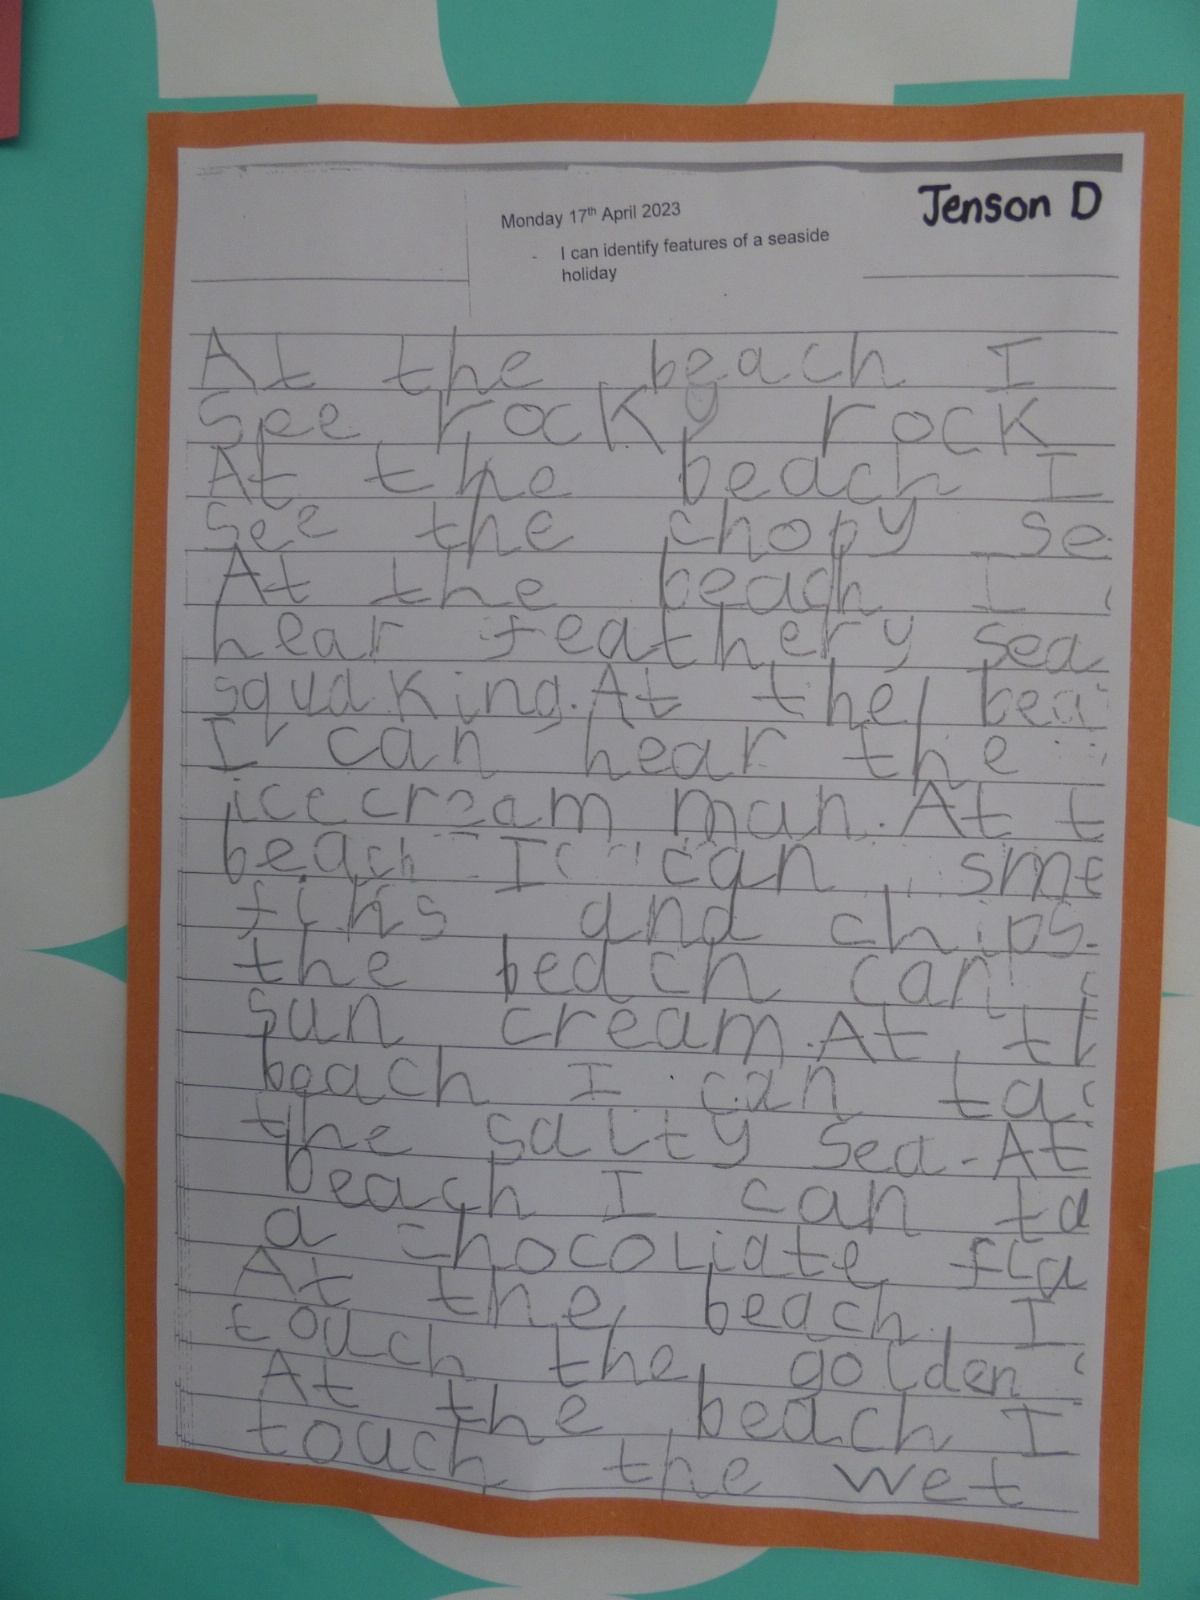 Jenson D
Monday 17th April 2023
- I can identify features of a seaside
holiday
At the beach I
see rocky rock
At the beach I
see the chopy se
At the beach I
hear feathery sea
squaking. At the bea
I can hear the
icecream man. At t
beach I can sme
fihs and chips.
the beach can
sun cream. At th
beach I can tas
the salty sea. At
beach I can ta
a chocoliate fla
At the beach I
touch the golden
At the beach I
touch the wet